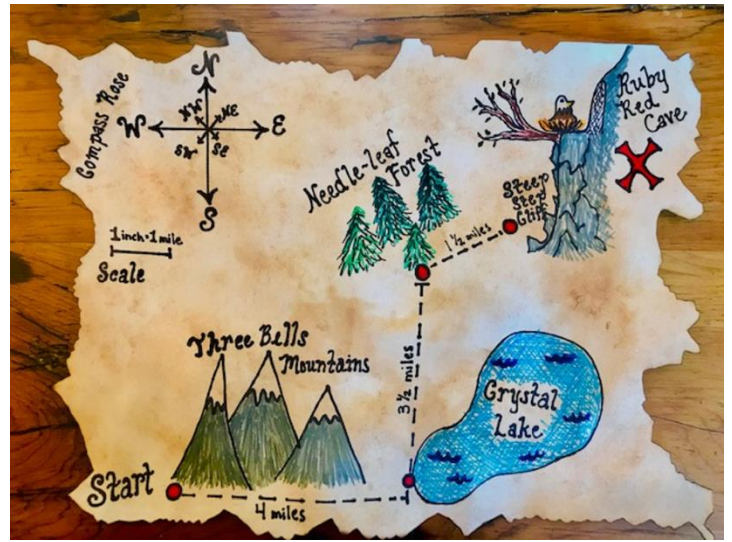 Compass Rose
N
NW NE
W E
SW SE
S
1 inch = 1 mile
Scale
Needle-leaf
Forest
Ruby
Red
Cave
Steep
Step
Cliff
1 ½ miles
Three Bells
Mountains
3 ½ miles
Crystal
Lake
Start
4 miles